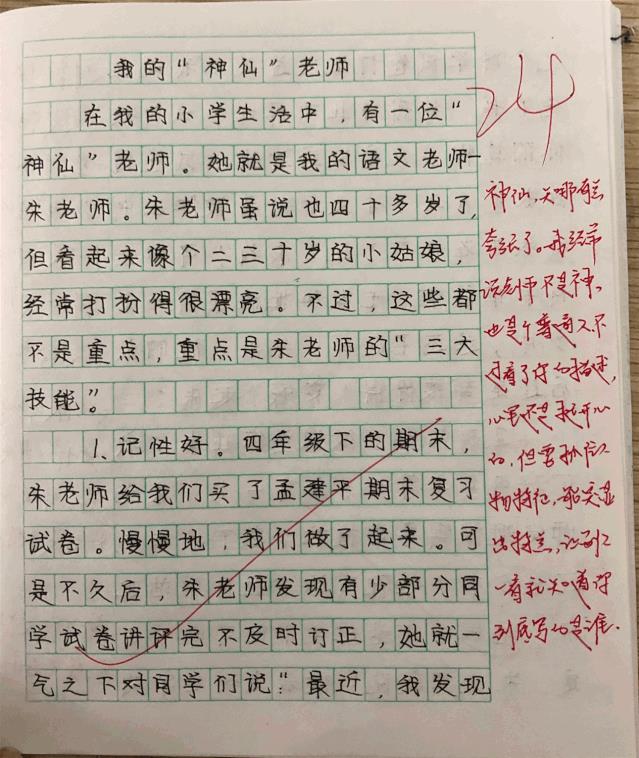 我的“神仙”老师
24
在我的小学生活中，有一位“
神仙”老师。她就是我的语文老师—
朱老师。朱老师虽说也四十多岁了，
但看起来像个二三十岁的小姑娘，
经常打扮得很漂亮。不过，这些都
不是重点，重点是朱老师的“三大
技能”。
1、记性好。四年级下的期末，
朱老师给我们买了孟建平期末复习
试卷。慢慢地，我们做了起来。可
是不久后，朱老师发现有少部分同
学试卷讲评完不及时订正，她就一
气之下对同学们说：“最近，我发现
神仙，
夸张了。我经常
说老师不是神，
也是个普通人。不
过看了你的描述，
心里还是挺开心
的，但要抓住人
物特征，能突显
出特点，让别人
一看就知道你
到底写的是谁.